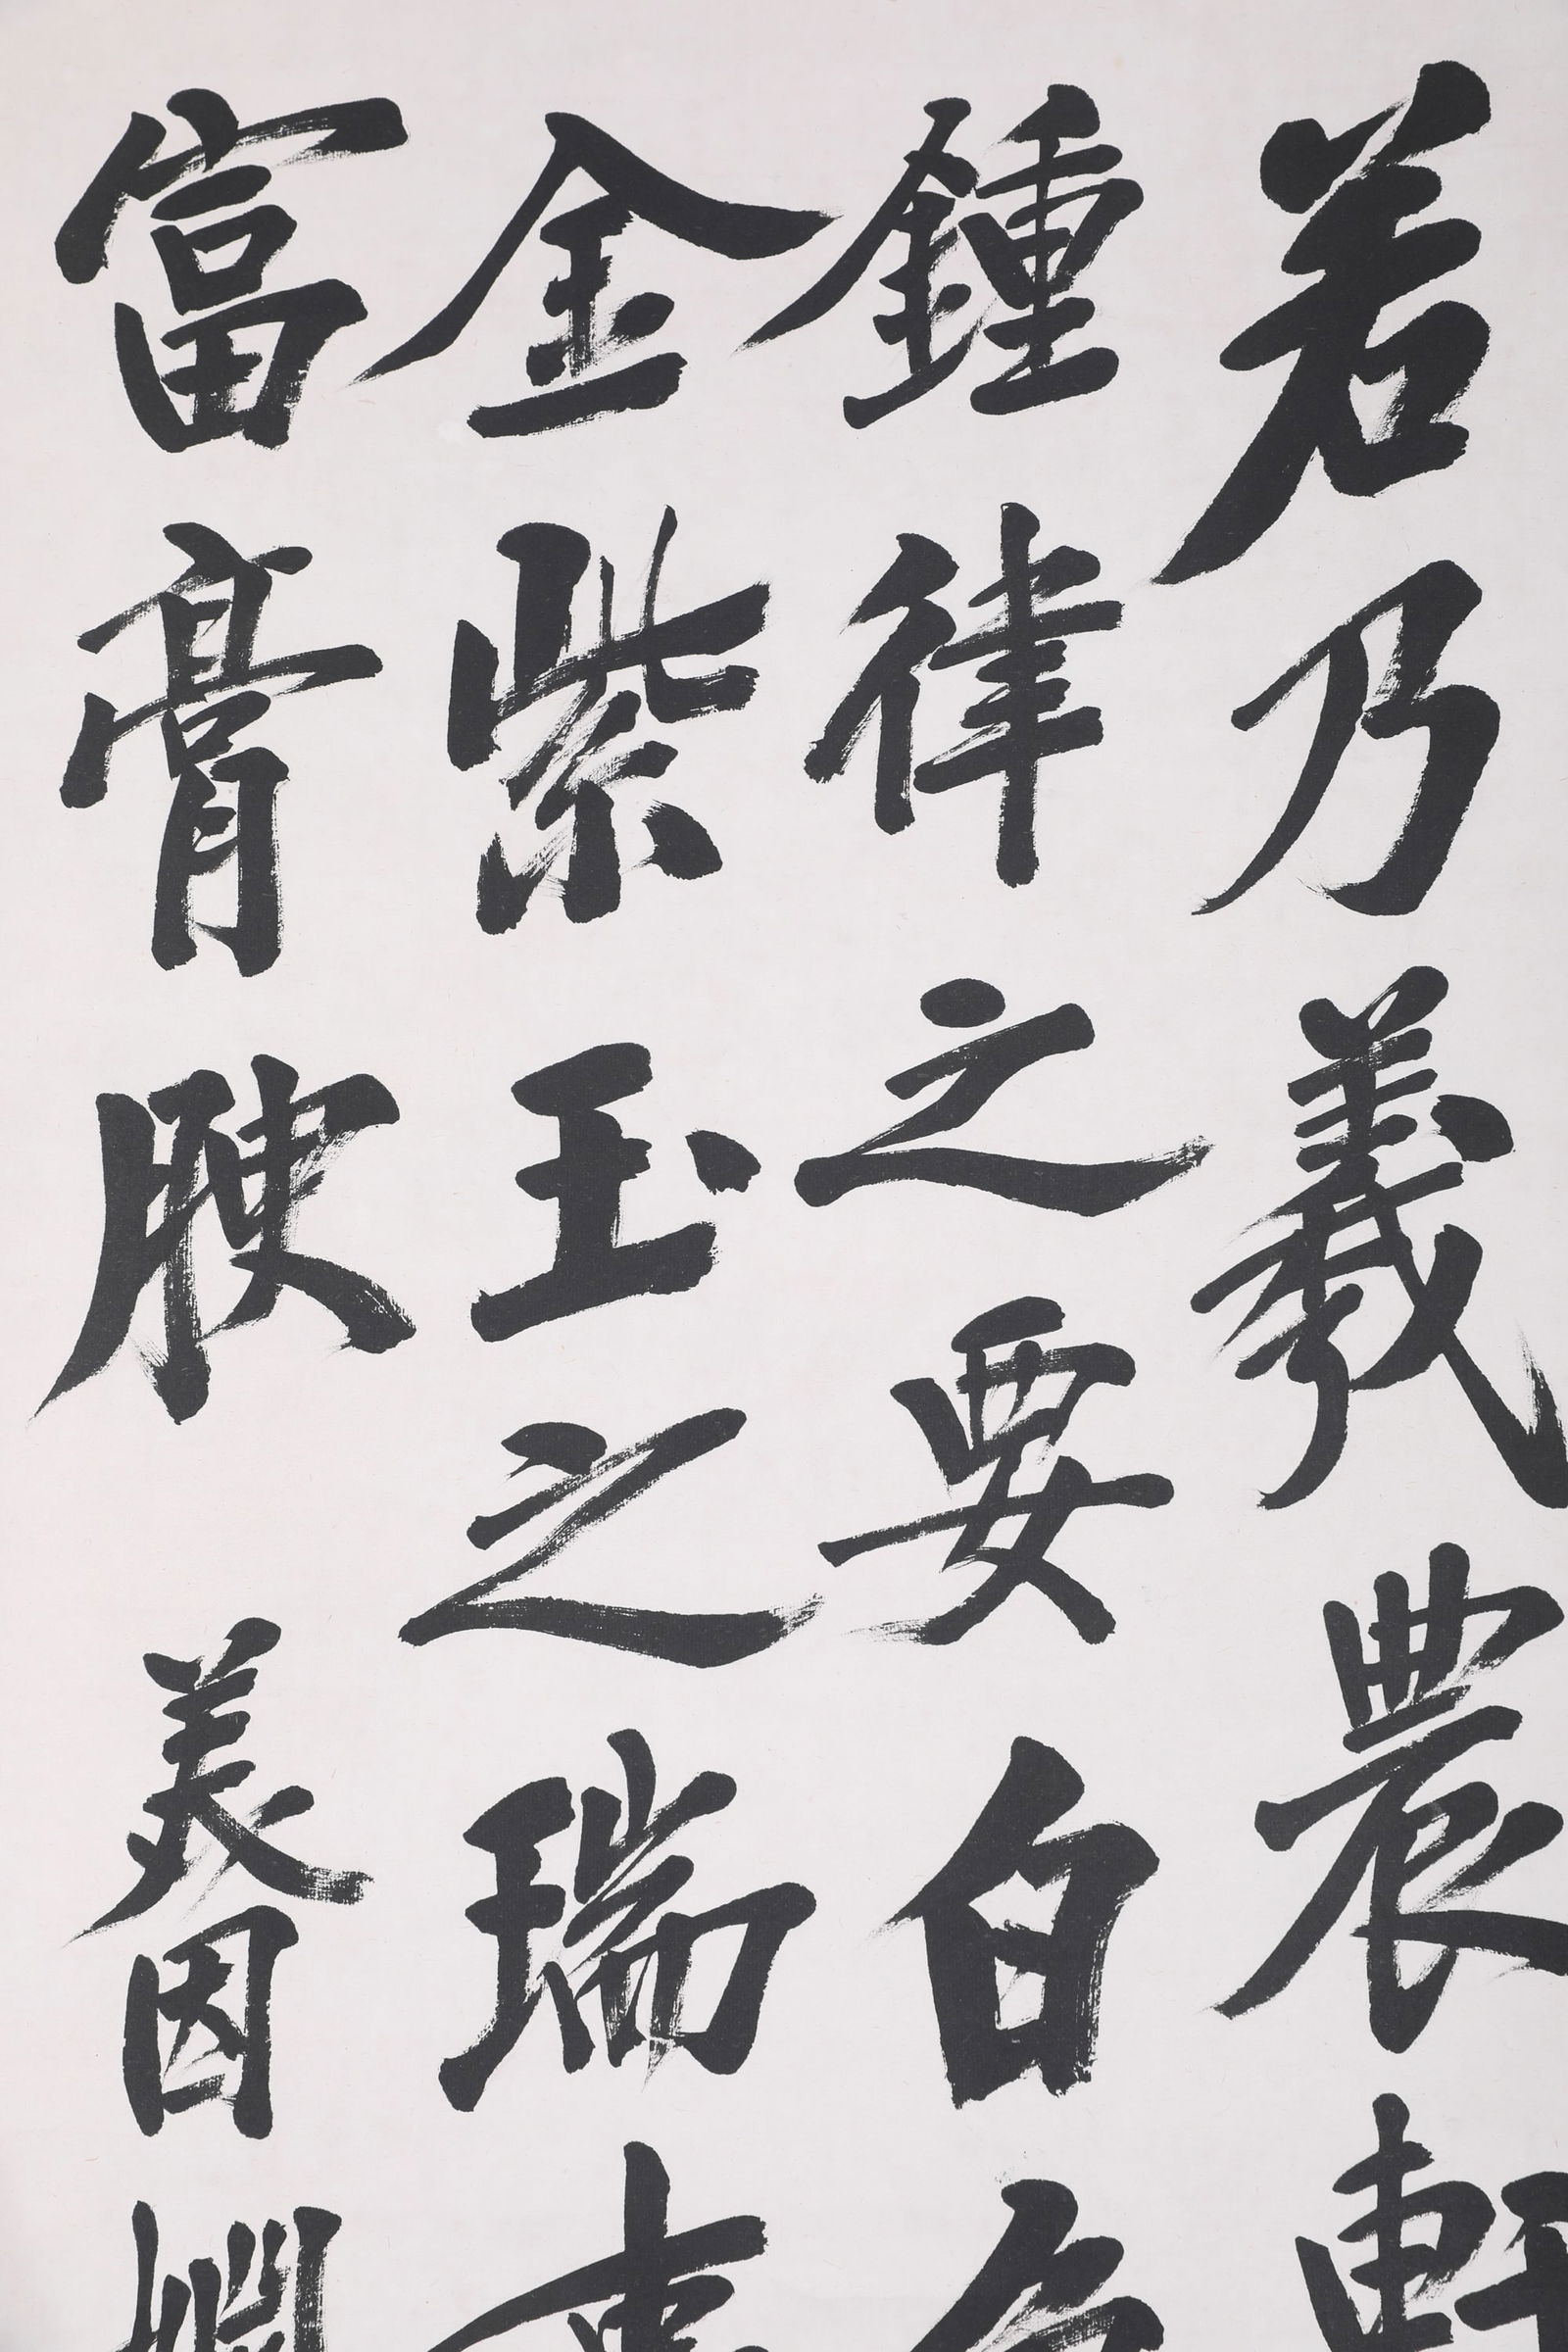 若乃羲農軒
鍾律之要白
金紫玉之瑞
富膏腴美因